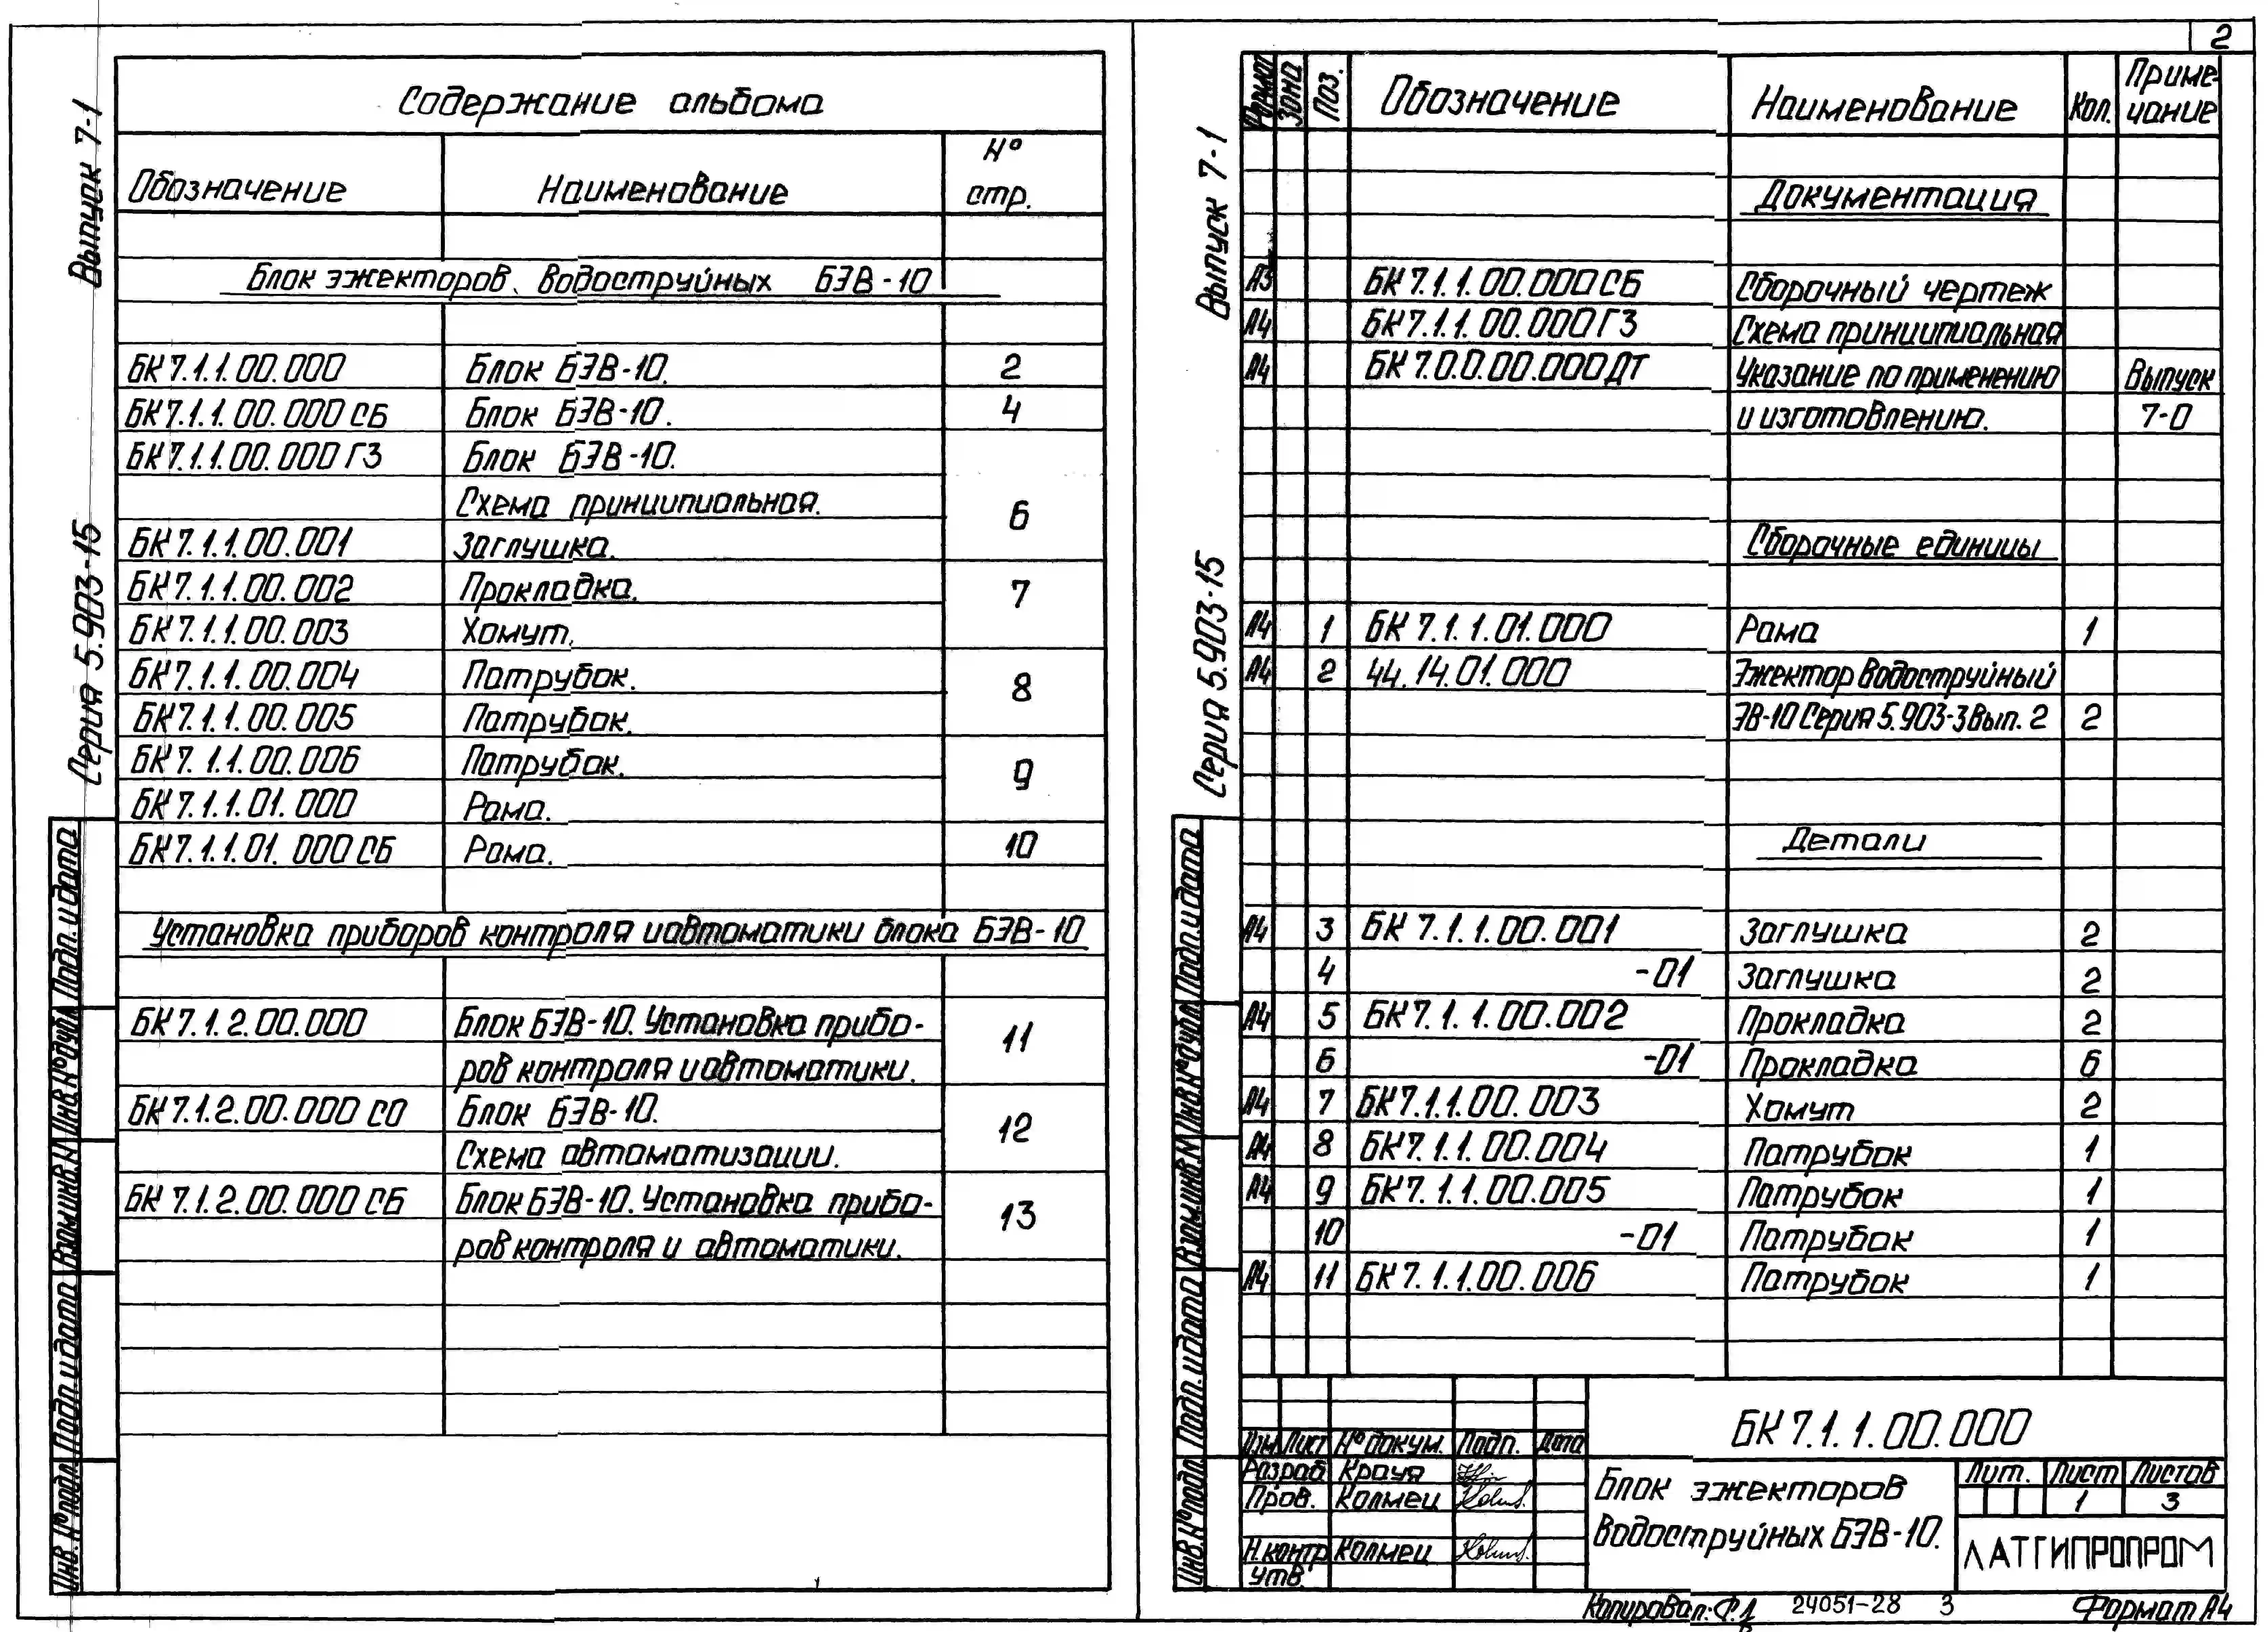 Содержание альбома
Обозначение Наименование № стр.
Блок эжекторов водоструйных БЭВ-10
БК 7.1.1.00.000 Блок БЭВ-10. 2
БК 7.1.1.00.000 СБ Блок БЭВ-10. 4
БК 7.1.1.00.000 ГЗ Блок БЭВ-10.
Схема принципиальная. 6
БК 7.1.1.00.001 Заглушка.
БК 7.1.1.00.002 Прокладка. 7
БК 7.1.1.00.003 Хомут.
БК 7.1.1.00.004 Патрубок. 8
БК 7.1.1.00.005 Патрубок.
БК 7.1.1.00.006 Патрубок. 9
БК 7.1.1.01.000 Рама.
БК 7.1.1.01.000 СБ Рама. 10
Установка приборов контроля и автоматики блока БЭВ-10
БК 7.1.2.00.000 Блок БЭВ-10. Установка прибо- 11
ров контроля и автоматики.
БК 7.1.2.00.000 СО Блок БЭВ-10. 12
Схема автоматизации.
БК 7.1.2.00.000 СБ Блок БЭВ-10. Установка прибо- 13
ров контроля и автоматики.
Выпуск 7-1
Серия 5.903-15
Инв. № подл. Подп. и дата Взам. инв. № Инв. № дубл. Подп. и дата
2
Формат Зона Поз. Обозначение Наименование Кол. Приме-
чание
Документация
А3 БК 7.1.1.00.000 СБ Сборочный чертеж
А4 БК 7.1.1.00.000 ГЗ Схема принципиальная
А4 БК 7.0.0.00.000 ДТ Указание по применению Выпуск
и изготовлению. 7-0
Сборочные единицы
А4 1 БК 7.1.1.01.000 Рама 1
А4 2 44.14.01.000 Эжектор водоструйный
ЭВ-10 Серия 5.903-3 Вып. 2 2
Детали
А4 3 БК 7.1.1.00.001 Заглушка 2
4 -01 Заглушка 2
А4 5 БК 7.1.1.00.002 Прокладка 2
6 -01 Прокладка 6
А4 7 БК 7.1.1.00.003 Хомут 2
А4 8 БК 7.1.1.00.004 Патрубок 1
А4 9 БК 7.1.1.00.005 Патрубок 1
10 -01 Патрубок 1
А4 11 БК 7.1.1.00.006 Патрубок 1
Выпуск 7-1
Серия 5.903-15
Инв. № подл. Подп. и дата Взам. инв. № Инв. № дубл. Подп. и дата
БК 7.1.1.00.000
Изм Лист № докум. Подп. Дата
Разраб Крауя
Пров. Колмец
Н.контр Колмец
Утв.
Блок эжекторов
водоструйных БЭВ-10.
Лит. Лист Листов
1 3
ЛАТГИПРОПРОМ
Копировал: 24051-28 3 Формат А4